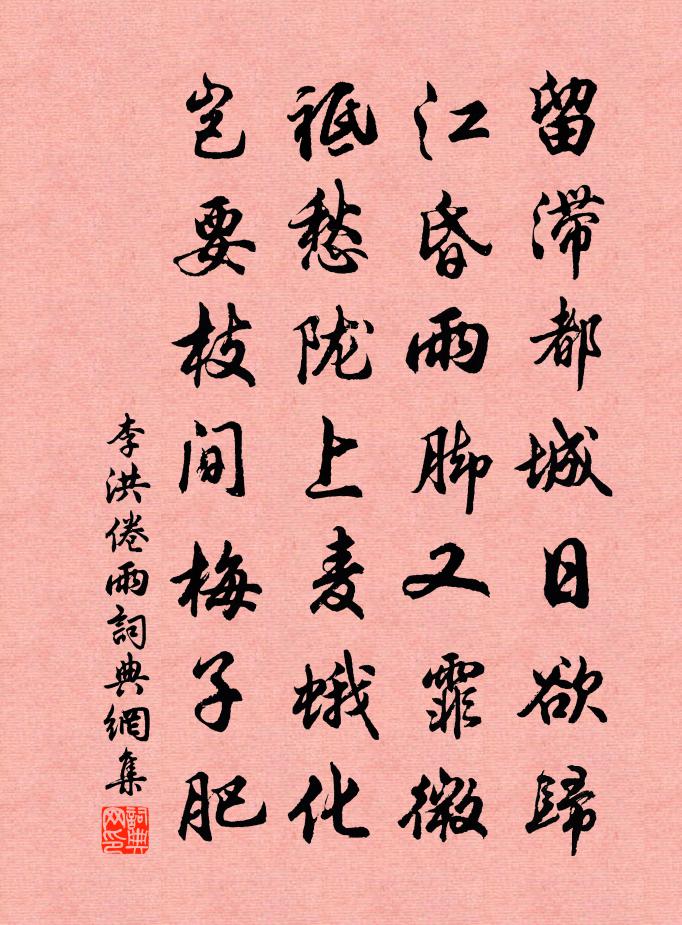 留滯都城日欲歸
江昏雨脚又霏微
祗愁陇上麦蛾化
岂要枝间梅子肥
李洪倦雨詞典網集
詞典网印